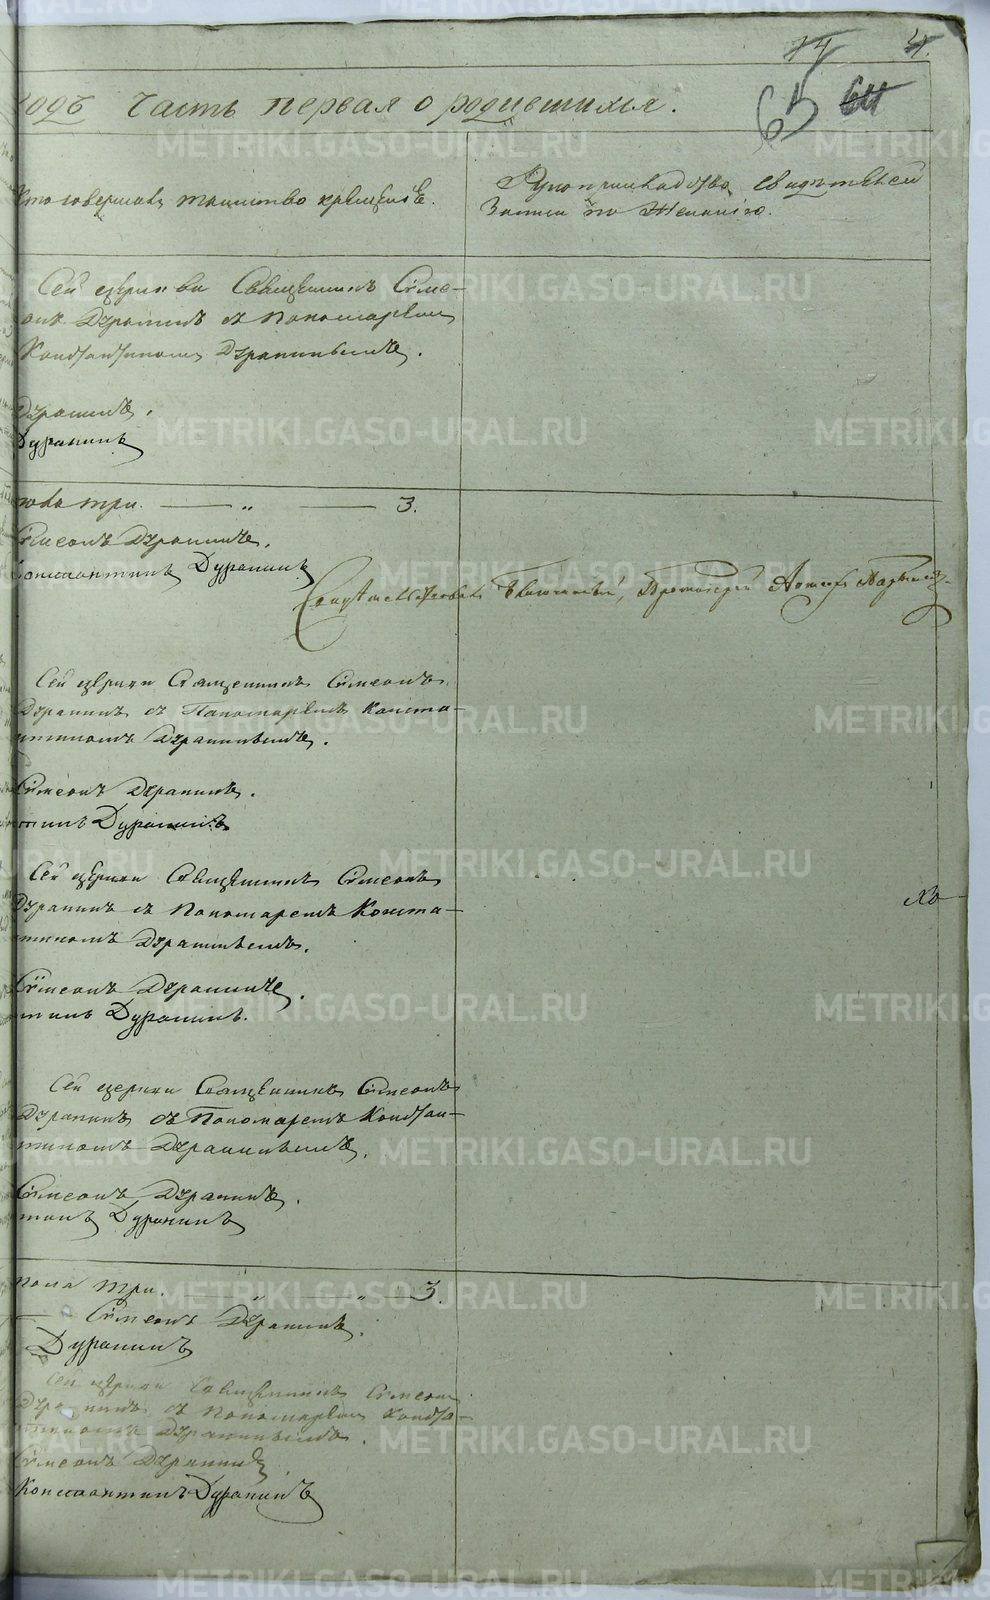 74 4.
65 64
годъ Часть первая о родившихся.
Кто совершалъ таинство крещенія.
Рукоприкладство свидѣтелей
Записи по желанію.
Сей церкви Священникъ Симе-
онъ Дуранинъ съ Пономаремъ
Константиномъ Дуранинымъ.
Дуранинъ.
Дуранинъ
три. — „ — 3.
Симеонъ Дуранинъ.
Константинъ Дуранинъ
Протоіерей
Сей церкви Священникъ Симеонъ
Дуранинъ съ Пономаремъ Конста-
нтиномъ Дуранинымъ.
Симеонъ Дуранинъ.
тинъ Дуранинъ
Сей церкви Священникъ Симеонъ
Дуранинъ съ Пономаремъ Конста-
нтиномъ Дуранинымъ.
Симеонъ Дуранинъ.
тинъ Дуранинъ.
Сей церкви Священникъ Симеонъ
Дуранинъ съ Пономаремъ Констан-
тиномъ Дуранинымъ.
Симеонъ Дуранинъ.
тинъ Дуранинъ
пола три. — „ — „ — 3.
Симеонъ Дуранинъ.
Дуранинъ
Сей церкви Священникъ Симеонъ
Дуранинъ съ Пономаремъ Конста-
нтиномъ Дуранинымъ.
Симеонъ Дуранинъ
Константинъ Дуранинъ
METRIKI.GASO-URAL.RU